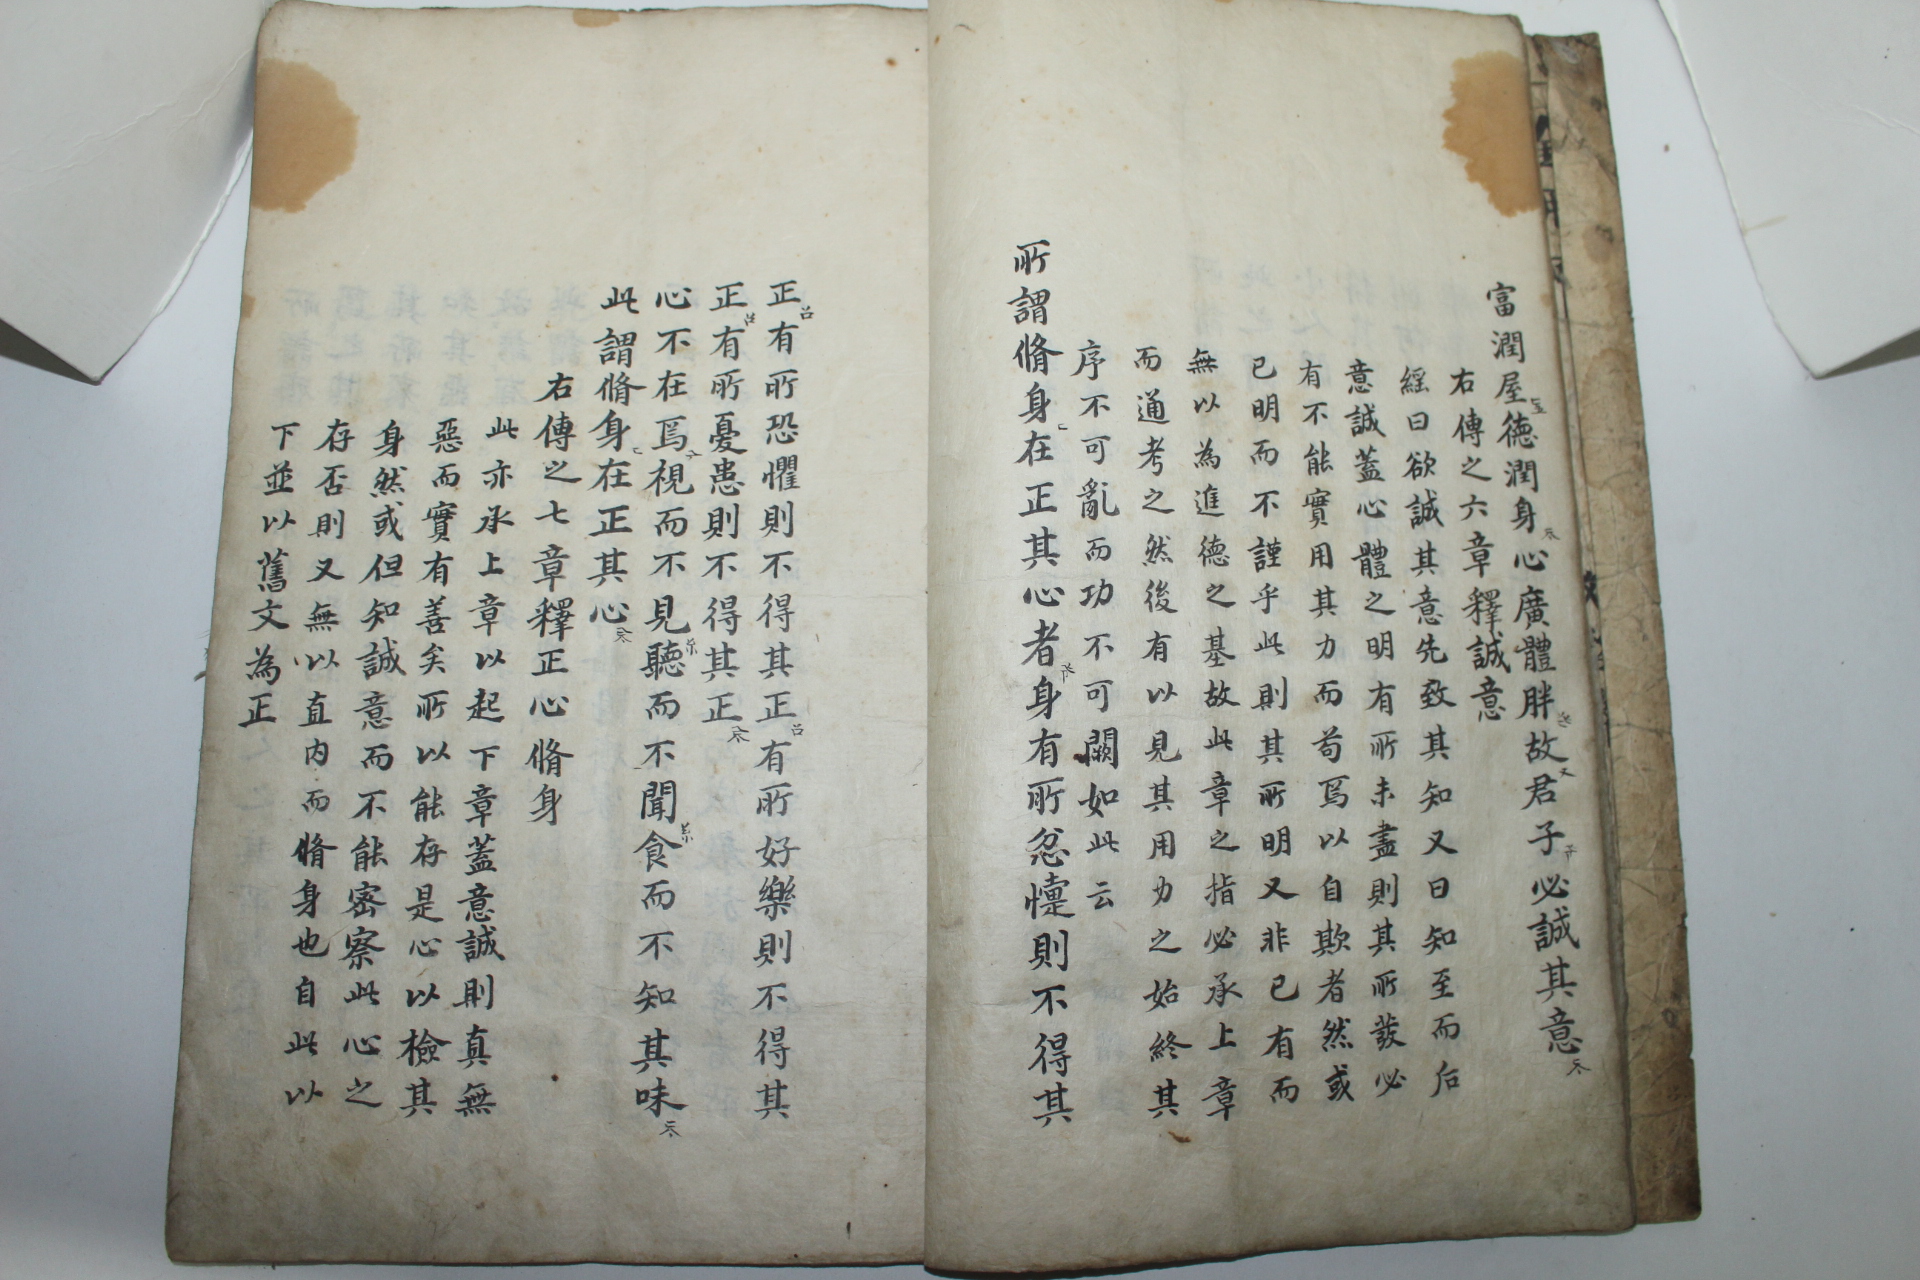 富潤屋德潤身心廣體胖故君子必誠其意
右傳之六章釋誠意
經曰欲誠其意先致其知又曰知至而后
意誠蓋心體之明有所未盡則其所發必
有不能實用其力而苟焉以自欺者然或
已明而不謹乎此則其所明又非已有而
無以為進德之基故此章之指必承上章
而通考之然後有以見其用力之始終其
序不可亂而功不可闕如此云
所謂脩身在正其心者身有所忿懥則不得其
正有所恐懼則不得其正有所好樂則不得其
正有所憂患則不得其正
心不在焉視而不見聽而不聞食而不知其味
此謂脩身在正其心
右傳之七章釋正心脩身
此亦承上章以起下章蓋意誠則真無
惡而實有善矣所以能存是心以檢其
身然或但知誠意而不能密察此心之
存否則又無以直內而脩身也自此以
下並以舊文為正